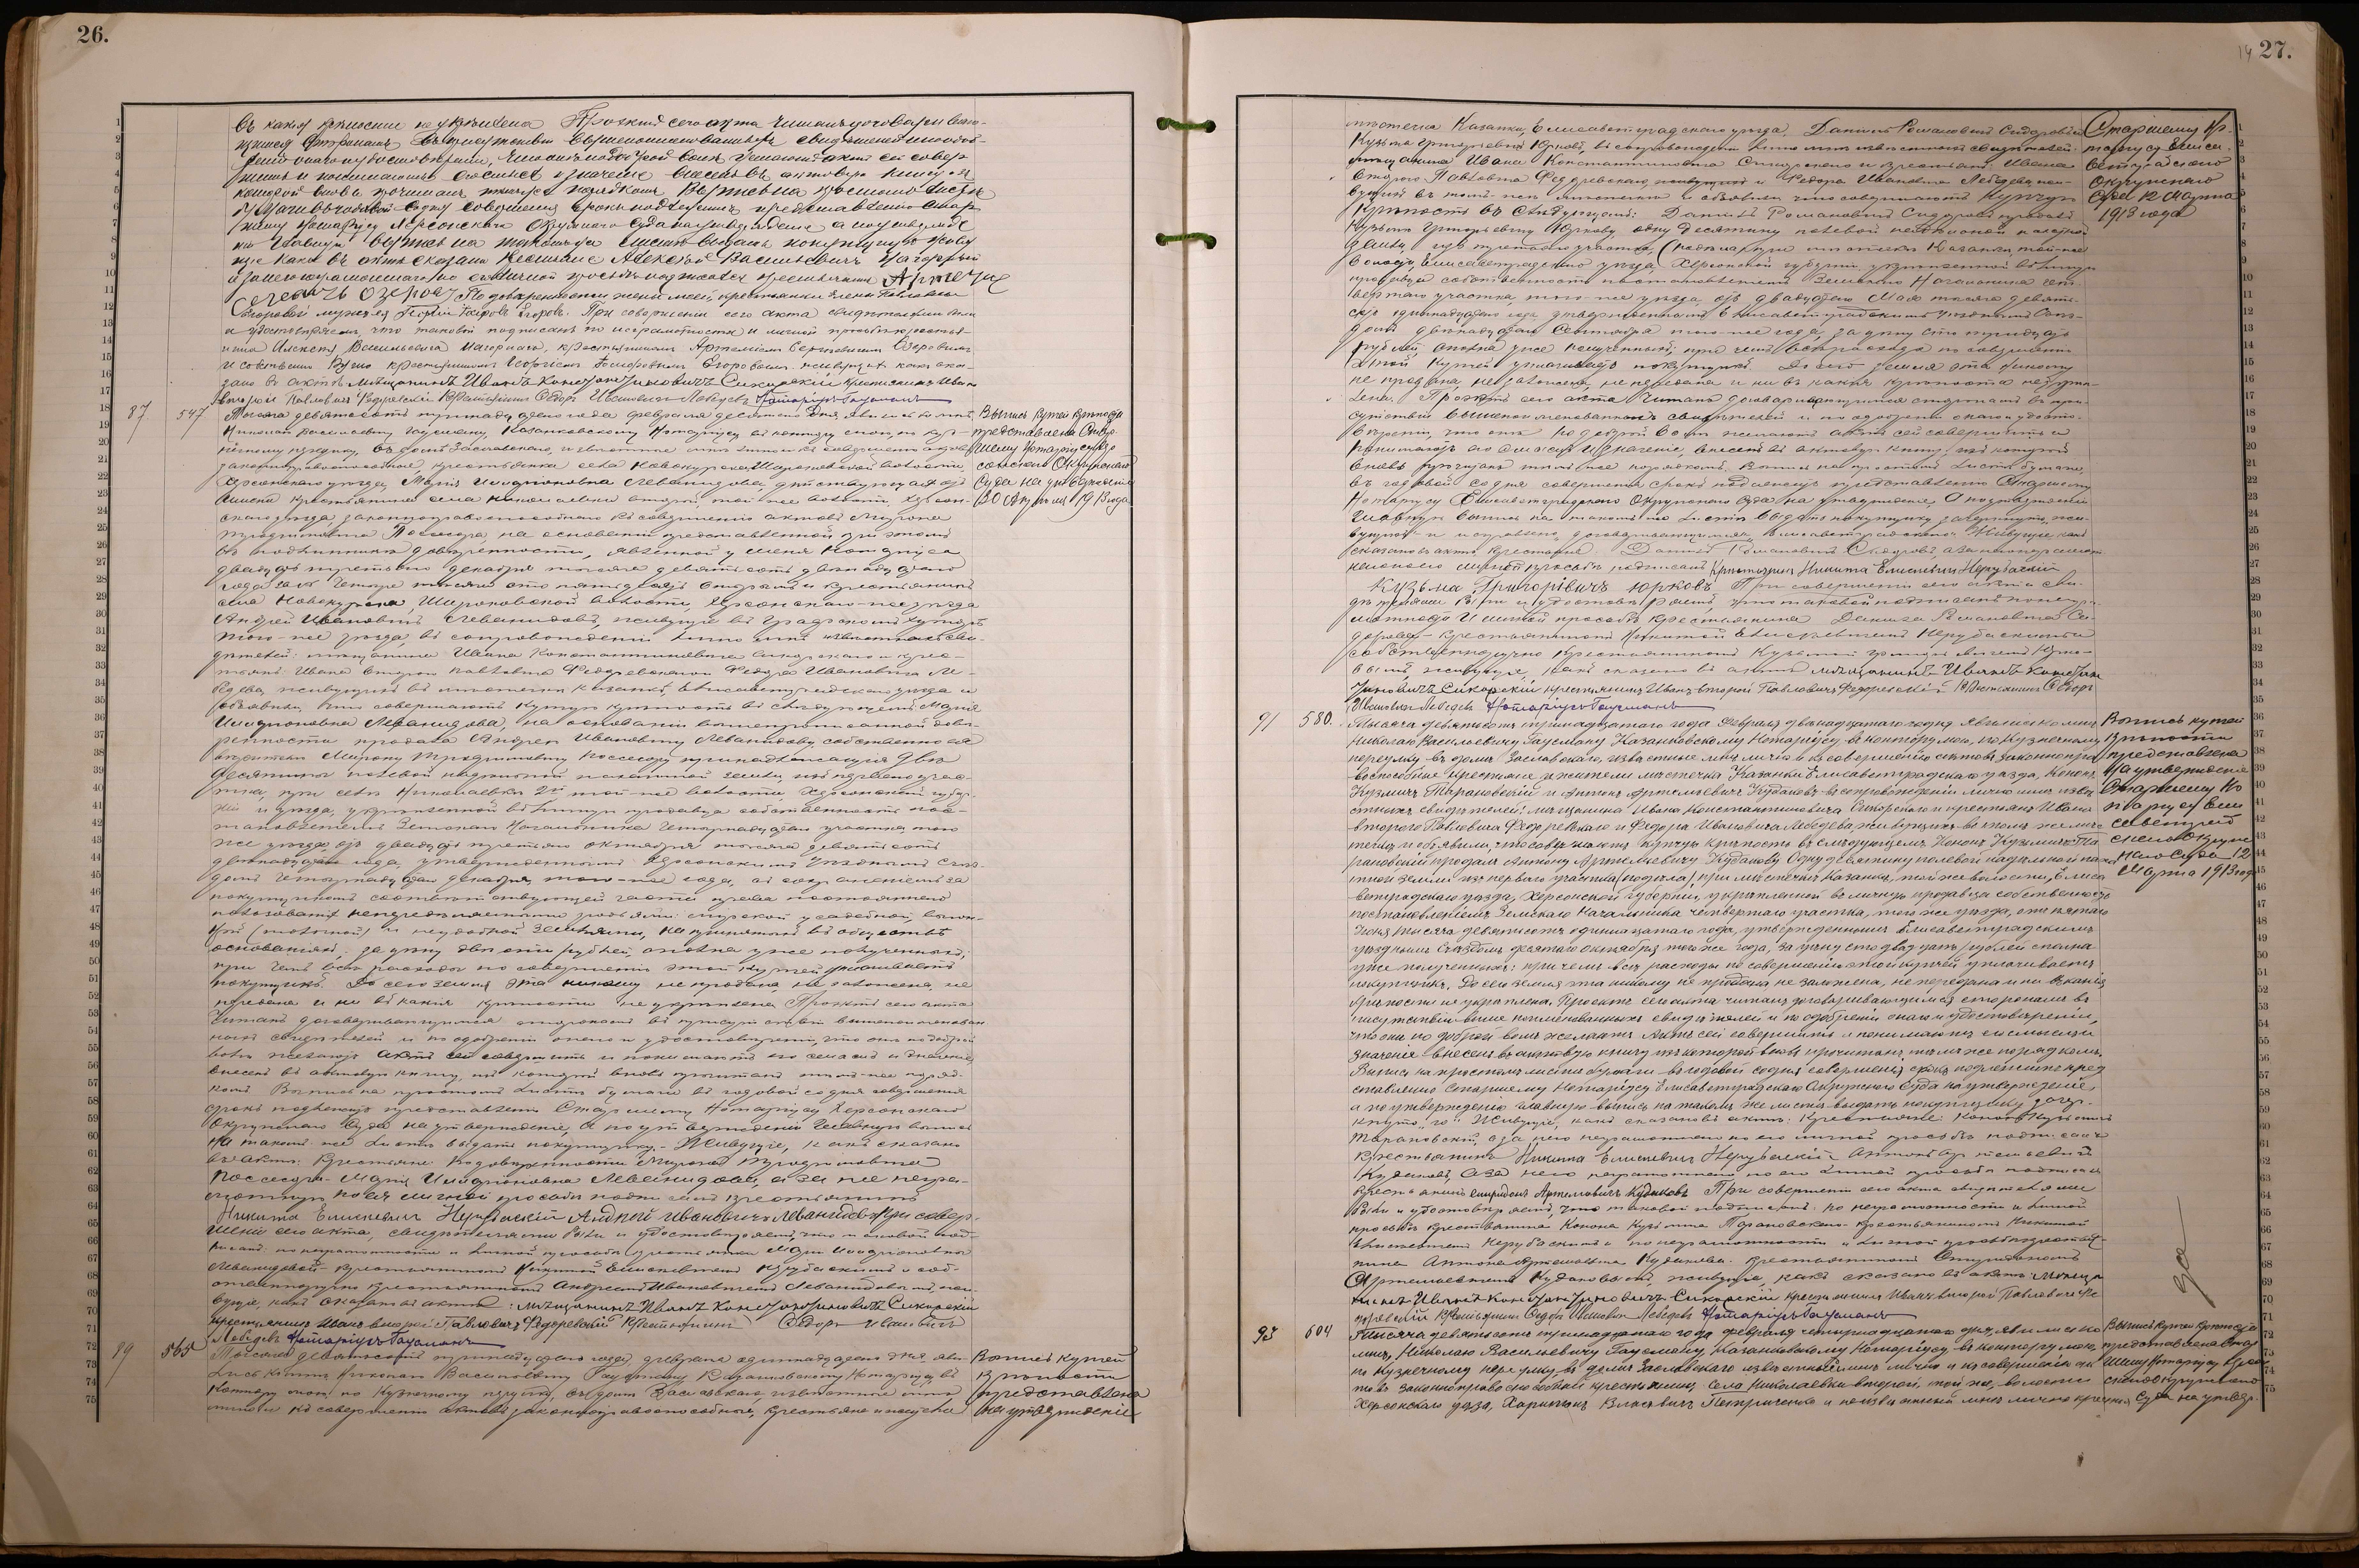 26.
въ какія крѣпости не укрѣплена Проэктъ сего акта читанъ договариваю-
щимся сторонамъ въ присутствіи вышепоименованныхъ свидѣтелей и по одоб-
реніи онаго и удостовѣреніи, что они по доброй волѣ желаютъ актъ сей совер-
шить и понимаютъ его смыслъ и значеніе внесенъ въ актовую книгу, изъ
которой вновь прочитанъ тѣмъ же порядкомъ Выпись на простомъ листѣ
бумаги въ годовой со дня совершенія срокъ подлежитъ представленію Стар-
шему Нотаріусу Херсонскаго Окружнаго Суда на утвержденіе а по утвержде-
ніи главную выпись на такомъ же листѣ выдать покупщику Живу-
щіе какъ въ актѣ сказано Крестьяне Алексѣй Васильевичъ Нагорный
а за него неграмотнаго по его личной просьбѣ подписался крестьянинъ Артемъ
Озеровъ По довѣренности жены моей, крестьянки Елены Павловны
Егоровой мужъ ея Егоровъ. При совершеніи сего акта свидѣтелями были
и удостовѣряемъ, что таковой подписанъ по неграмотности и личной просьбѣ крестья-
нина Алексѣя Васильевича Нагорнаго, крестьяниномъ Артеміемъ Сергѣевичемъ Озеровымъ
и собственноручно крестьяниномъ Георгіемъ Егоровымъ живущіе какъ ска-
зано въ актѣ Мѣщанинъ Иванъ Константиновичъ Сикорскій крестьянинъ Иванъ
второй Павловичъ Федоревскій Крестьянинъ Федоръ Ивановичъ Лебедевъ Нотаріусъ Гаусманъ
87 547 Тысяча девятьсотъ тринадцатаго года февраля десятаго дня, явились ко мнѣ,
Николаю Васильевичу Гаусману, Казанковскому Нотаріусу въ контору мою, по Куз-
нечному переулку, въ домѣ Заславскаго, извѣстные мнѣ лично и къ совершенію актовъ
законноправоспособные крестьянка села Новокурска, Широковской волости,
Херсонскаго уѣзда, Марія Илларіоновна Леванидова, дѣйствующая отъ
имени крестьянина села Николаевки второй, той же волости, Херсон-
скаго уѣзда, законноправоспособнаго къ совершенію актовъ Мирона
Трофимовича Поссесора, на основаніи представленной при этомъ
въ подлинникѣ довѣренности, явленной у меня Нотаріуса
двадцать третьяго декабря тысяча девятьсотъ двѣнадцатаго
года за № четыре тысячи сто пятьдесятъ вторымъ и крестьянинъ
села Новокурска, Широковской волости, Херсонскаго же уѣзда
Андрей Ивановичъ Леванидовъ, живущіе въ хуторѣ
того-же уѣзда, въ сопровожденіи лично мнѣ извѣстныхъ сви-
дѣтелей: мѣщанина Ивана Константиновича Сикорскаго и крес-
тьянъ Ивана второго Павловича Федоревскаго и Федора Ивановича Ле-
бедева, живущихъ въ мѣстечкѣ Казанкѣ, Елисаветградскаго уѣзда и
объявили, что совершаютъ купчую крѣпость въ слѣдующемъ: Марія
Илларіоновна Леванидова, на основаніи вышеупомянутой довѣ-
ренности продала Андрею Ивановичу Леванидову собственно его
вѣрителю Мирону Трофимовичу Поссесору принадлежащія двѣ
десятины полевой надѣльной пахатной земли, изъ перваго учас-
тка, при селѣ Николаевкѣ 2й той же волости, Херсонской губер-
ніи и уѣзда, укрѣпленной въ личную продавца собственность пос-
тановленіемъ Земскаго Начальника четырнадцатаго участка того
же уѣзда, отъ двадцать третьяго октября тысяча девятьсотъ
двѣнадцатаго года, утвержденнымъ Херсонскимъ Уѣзднымъ Съѣз-
домъ четырнадцатаго декабря, того-же года, съ сохраненіемъ за
покупщикомъ соотвѣтствующей части права постояннаго
пользованія неразверстанными угодьями: мірской усадебной, выгон-
ной (толочной) и неудобной землями, на принятыхъ въ обществѣ
основаніяхъ, за цѣну двѣсти рублей, сполна уже полученныхъ;
при чемъ всѣ расходы по совершенію этой купчей уплачиваетъ
покупщикъ. До сего земля эта никому не продана, не заложена, не
передана и ни въ какія крѣпости не укрѣплена Проэктъ сего акта
читанъ договаривающимся сторонамъ въ присутствіи вышепоименован
ныхъ свидѣтелей и по одобреніи онаго и удостовѣреніи, что они по доброй
волѣ желаютъ актъ сей совершить и понимаютъ его смыслъ и значеніе,
внесенъ въ актовую книгу, изъ которой вновь прочитанъ тѣмъ-же поряд-
комъ Выпись на простомъ листѣ бумаги въ годовой со дня совершенія
срокъ подлежитъ представленію Старшему Нотаріусу Херсонскаго
Окружнаго Суда на утвержденіе, а по утвержденіи главную выпись
на такомъ же листѣ выдать покупщику. Живущіе, какъ сказано
въ актѣ: Крестьяне По довѣренности Мирона Трофимовича
Поссесора - Марія Илларіоновна Леванидова, а за нее негра-
мотную по ея личной просьбѣ подписался крестьянинъ
Никита Елисѣевичъ Нерубаскій Андрей Ивановичъ Леванидовъ При совер-
шеніи сего акта, свидѣтелями были и удостовѣряемъ, что таковой под-
писанъ: по неграмотности и личной просьбѣ крестьянки Маріи Илларіоновны
Леванидовой - крестьяниномъ Никитой Елисѣевичемъ Нерубаскимъ и соб-
ственноручно крестьяниномъ Андреемъ Ивановичемъ Леванидовымъ, жи-
вущіе, какъ сказано въ актѣ: Мѣщанинъ Иванъ Константиновичъ Сикорскій
крестьянинъ Иванъ второй Павловичъ Федоревскій Крестьянинъ Федоръ Ивановичъ
Лебедевъ Нотаріусъ Гаусманъ
89 565 Тысяча девятьсотъ тринадцатаго года, февраля одиннадцатаго дня, яви-
лись ко мнѣ, Николаю Васильевичу Гаусману Казанковскому Нотаріусу, въ
контору мою, по Кузнечному переулку, въ домѣ Заславскаго, извѣстные мнѣ
лично и къ совершенію актовъ законноправоспособные, крестьяне и жители
Выпись купчей крѣпости
представлена Стар-
шему Нотаріусу Хер-
сонскаго Окружнаго
Суда на утвержденіе
20 Апрѣля 1913 года
Выпись купчей
крѣпости
представлена
на утвержденіе
27.
14
мѣстечка Казанки, Елисаветградскаго уѣзда, Даніилъ Романовичъ Сидоровъ и
Кузьма Григорьевичъ Юрковъ, въ сопровожденіи лично мнѣ извѣстныхъ свидѣтелей:
мѣщанина Ивана Константиновича Сикорскаго и крестьянъ: Ивана
второго Павловича Федоревскаго и Федора Ивановича Лебедева, жи-
вущихъ въ томъ же мѣстечкѣ и объявили, что совершаютъ купчую
крѣпость въ слѣдующемъ: Даніилъ Романовичъ Сидоровъ продалъ
Кузьмѣ Григорьевичу Юркову одну десятину полевой надѣльной пахатной
земли, изъ участка, при мѣстечкѣ Казанкѣ, той-же
волости, Елисаветградскаго уѣзда, Херсонской губерніи, укрѣпленной въ личную
продавца собственность постановленіемъ Земскаго Начальника чет-
вертаго участка, того-же уѣзда, отъ двадцатаго Мая тысяча девять-
сотъ одиннадцатаго года, утвержденнымъ Елисаветградскимъ Уѣзднымъ Съѣз-
домъ двѣнадцатаго Сентября того-же года, за цѣну сто тридцать
рублей, сполна уже полученныхъ; при чемъ всѣ расходы по совершенію
этой купчей уплачиваетъ покупщикъ. До сего земля эта никому
не продана, не заложена, не передана и ни въ какія крѣпости не укрѣп-
лена. Проэктъ сего акта читанъ договаривающимся сторонамъ въ при-
сутствіи вышепоименованныхъ свидѣтелей и по одобреніи онаго и удосто-
вѣреніи, что они по доброй волѣ желаютъ актъ сей совершить и
понимаютъ его смыслъ и значеніе, внесенъ въ актовую книгу, изъ которой
вновь прочитанъ тѣмъ же порядкомъ. Выпись на простомъ листѣ бумаги,
въ годовой со дня совершенія срокъ подлежитъ представленію Старшему
Нотаріусу Елисаветградскаго Окружнаго Суда на утвержденіе, а по утвержденіи
главную выпись на такомъ же листѣ выдать покупщику
Живущіе какъ
сказано въ актѣ крестьяне: Даніилъ Романовичъ Сидоровъ, а за него неграмот-
наго по его личной просьбѣ подписался Крестьянинъ Никита Елисѣевичъ Нерубаскій
Кузьма Григорівичъ Юрковъ При совершеніи сего акта сви-
дѣтелями были и удостовѣряемъ, что таковой подписанъ: по негра-
мотности и личной просьбѣ крестьянина Даніила Романовича Си-
дорова - крестьяниномъ Никитой Елисѣевичемъ Нерубаскимъ и
собственноручно крестьяниномъ Кузьмой Григорьевичемъ Юрко-
вымъ, живущіе, какъ сказано въ актѣ Мѣщанинъ Иванъ Констан
тиновичъ Сикорскій крестьянинъ Иванъ второй Павловичъ Федоревскій Крестьянинъ Федоръ
Ивановичъ Лебедевъ Нотаріусъ Гаусманъ
91 580. Тысяча девятьсотъ тринадцатаго года Февраля двѣнадцатаго дня, явились ко мнѣ,
Николаю Васильевичу Гаусману, Казанковскому Нотаріусу, въ контору мою, по Кузнечному
переулку, въ домѣ Заславскаго, извѣстные мнѣ лично и къ совершенію актовъ законнопра
воспособные крестьяне и жители мѣстечка Казанки Елисаветградскаго уѣзда, Кононъ
Кузмичъ Тарановскій и Антонъ Артемьевичъ Кудаковъ въ сопровожденіи лично мнѣ извѣ
стныхъ свидѣтелей: мѣщанина Ивана Константиновича Сикорскаго и крестьянъ Ивана
второго Павловича Федоревскаго и Федора Ивановича Лебедева, живущихъ въ томъ же мѣс
течкѣ и объявили, что совершаютъ купчую крѣпость въ слѣдующемъ: Кононъ Кузмичъ Та
рановскій продалъ Антону Артемьевичу Кудакову одну десятину полевой надѣльной паха
тной земли изъ перваго участка (надѣла) при мѣстечкѣ Казанкѣ, той же волости, Елиса
ветградскаго уѣзда, Херсонской губерніи, укрѣпленной въ личную продавца собственность
постановленіемъ Земскаго Начальника четвертаго участка, того же уѣзда, отъ пятаго
Іюня тысяча девятьсотъ одиннадцатаго года, утвержденнымъ Елисаветградскимъ
уѣзднымъ Съѣздомъ десятаго октября того же года, за цѣну сто двадцать рублей сполна
уже полученныхъ; при чемъ всѣ расходы по совершенію этой купчей уплачиваетъ
покупщикъ. До сего земля эта никому не продана, не заложена, не передана и ни въ какія
крѣпости не укрѣплена. Проэктъ сего акта читанъ договаривающимся сторонамъ въ
присутствіи выше поименованныхъ свидѣтелей и по одобреніи онаго и удостовѣреніи,
что они по доброй волѣ желаютъ актъ сей совершить и понимаютъ его смыслъ и
значеніе внесенъ въ актовую книгу изъ которой вновь прочитанъ тѣмъ же порядкомъ.
Выпись на простомъ листѣ бумаги въ годовой со дня совершенія срокъ подлежитъ пред
ставленію Старшему Нотаріусу Елисаветградскаго Окружнаго Суда на утвержденіе,
а по утвержденію главную выпись на такомъ же листѣ выдать покупщику
Живущіе, какъ сказано въ актѣ: Крестьяне: Кононъ Кузьмичъ
Тарановскій, а за него неграмотнаго по его личной просьбѣ подписался
крестьянинъ Никита Елисѣевичъ Нерубаскій Антонъ Артемьевичъ
Кудаковъ, а за него неграмотнаго по его личной просьбѣ подписался
крестьянинъ Спиридонъ Артемовичъ Кудаковъ При совершеніи сего акта свидѣтелями
были и удостовѣряемъ, что таковой подписанъ: по неграмотности и личной
просьбѣ крестьянина Конона Кузьмича Тарановскаго - крестьяниномъ Никитой
Елисѣевичемъ Нерубаскимъ и по неграмотности и личной просьбѣ крестья-
нина Антона Артемьевича Кудакова - крестьяниномъ Спиридономъ
Артемьевичемъ Кудаковымъ, живущіе, какъ сказано въ актѣ Мѣща
нинъ Иванъ Константиновичъ Сикорскій крестьянинъ Иванъ второй Павловичъ Фе
доревскій Крестьянинъ Федоръ Ивановичъ Лебедевъ Нотаріусъ Гаусманъ
93 604 Тысяча девятьсотъ тринадцатаго года февраля четырнадцатаго дня, явились ко
мнѣ, Николаю Васильевичу Гаусману, Казанковскому Нотаріусу, въ контору мою,
по Кузнечному переулку, въ домѣ Заславскаго извѣстный мнѣ лично и къ совершенію ак
товъ законноправоспособный крестьянинъ села Николаевки второй, той же волости
Херсонскаго уѣзда, Харитонъ Власовичъ Петриченко и неизвѣстный мнѣ лично
Старшему Но-
таріусу Елиса-
ветградскаго
Окружнаго
Суда 12 Марта
1913 года
Выпись купчей
крѣпости
представлена
на утвержденіе
Старшему Но
таріусу Ели
саветград
скаго Окруж
наго Суда 12
Марта 1913 год
Выпись купчей крѣпости
представлена Стар
шему Нотаріусу Херсон
скаго Окружнаго
Суда на утвер-